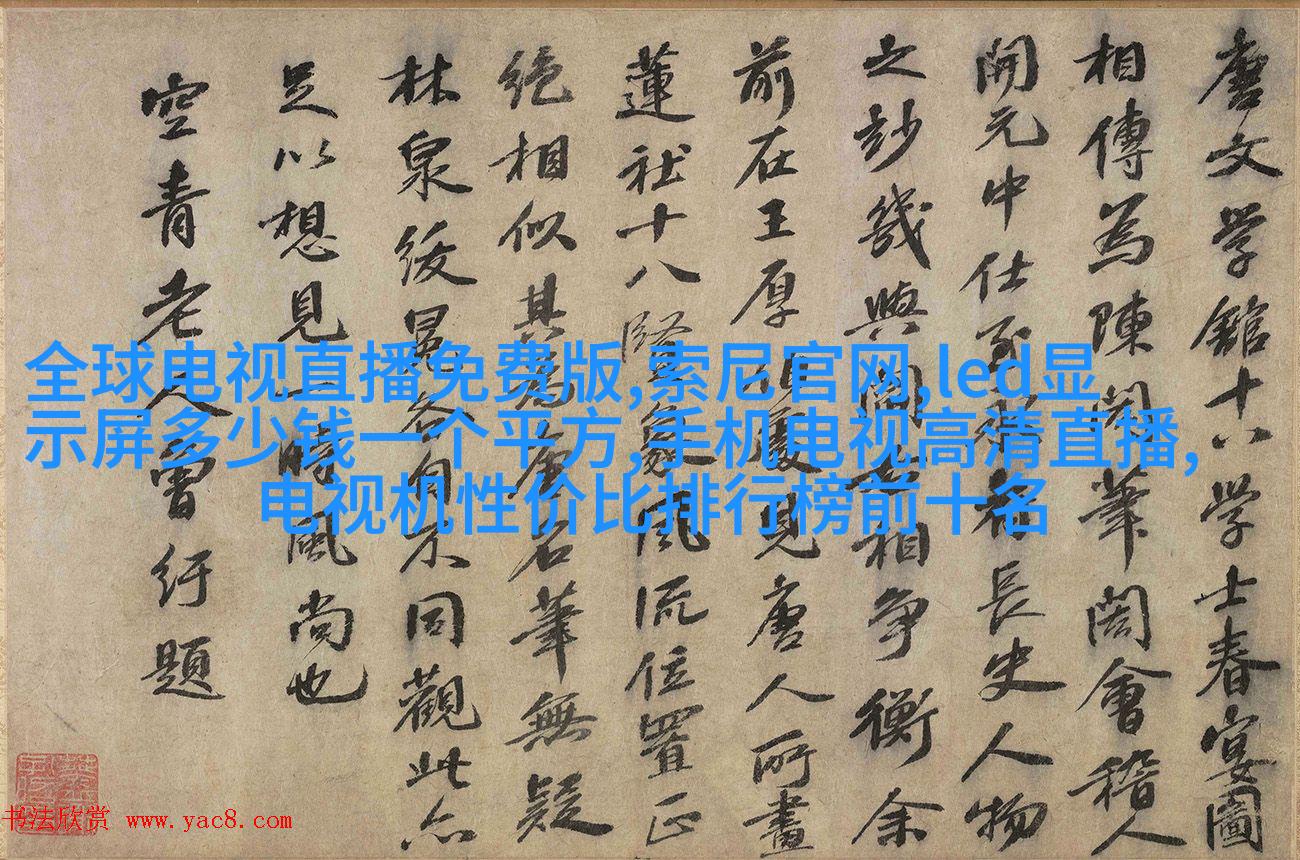 唐文学館十八学士春宴圖
相傳為陳閎筆閎會稽人
開元中仕至長史人物
之妙幾與閻相争衡余
前在王厚見唐人所畫
蓮社十八賢風流位置正
绝相似其為唐名筆無疑
林泉綬冕各自不同觀此亦
足以想見一時風尚也
空青老人曾紆題
全球电视直播免费版,索尼官网,led显
示屏多少钱一个平方,手机电视高清直播,
电视机性价比排行榜前十名
书法欣赏 www.yac8.com